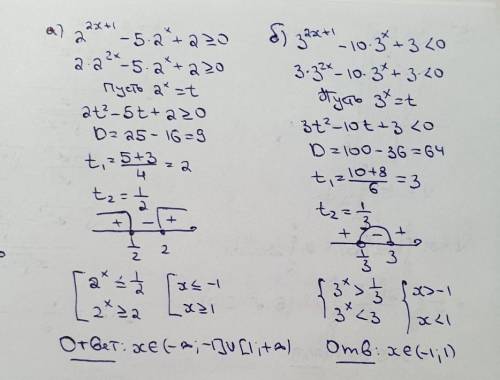 а) 2^{2x+1} - 5·2^x + 2 ≥ 0
2·2^{2x} - 5·2^x + 2 ≥ 0
Пусть 2^x = t
2t² - 5t + 2 ≥ 0
D = 25 - 16 = 9
t₁ = (5+3)/4 = 2
t₂ = 1/2
+ - +
1/2 2
[ 2^x ≤ 1/2 [ x ≤ -1
[ 2^x ≥ 2 [ x ≥ 1
Ответ: x∈(-∞; -1]∪[1; +∞)
б) 3^{2x+1} - 10·3^x + 3 < 0
3·3^{2x} - 10·3^x + 3 < 0
Пусть 3^x = t
3t² - 10t + 3 < 0
D = 100 - 36 = 64
t₁ = (10+8)/6 = 3
t₂ = 1/3
+ - +
1/3 3
{ 3^x > 1/3 { x > -1
{ 3^x < 3 { x < 1
Отв: x∈(-1; 1)